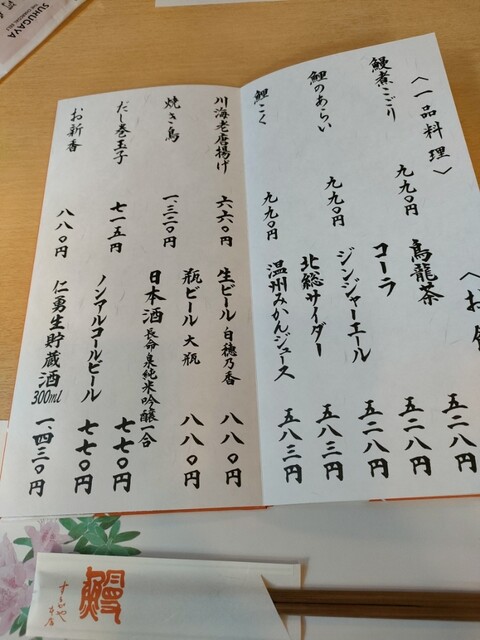 〈一品料理〉
鰻煮こごり 九九〇円
鯉のあらい 九九〇円
鯉こく 九九〇円
川海老唐揚げ 六六〇円
焼き鳥 一、三二〇円
だし巻玉子 七一五円
お新香 八八〇円
〈お
烏龍茶 五二八円
コーラ 五二八円
ジンジャーエール 五二八円
北総サイダー 五八三円
温州みかんジュース 五八三円
生ビール 白穂乃香 八八〇円
瓶ビール 大瓶 八八〇円
日本酒 長命泉純米吟醸一合 七七〇円
ノンアルコールビール 七七〇円
仁勇生貯蔵酒300ml 一、四三〇円
鰻
本店